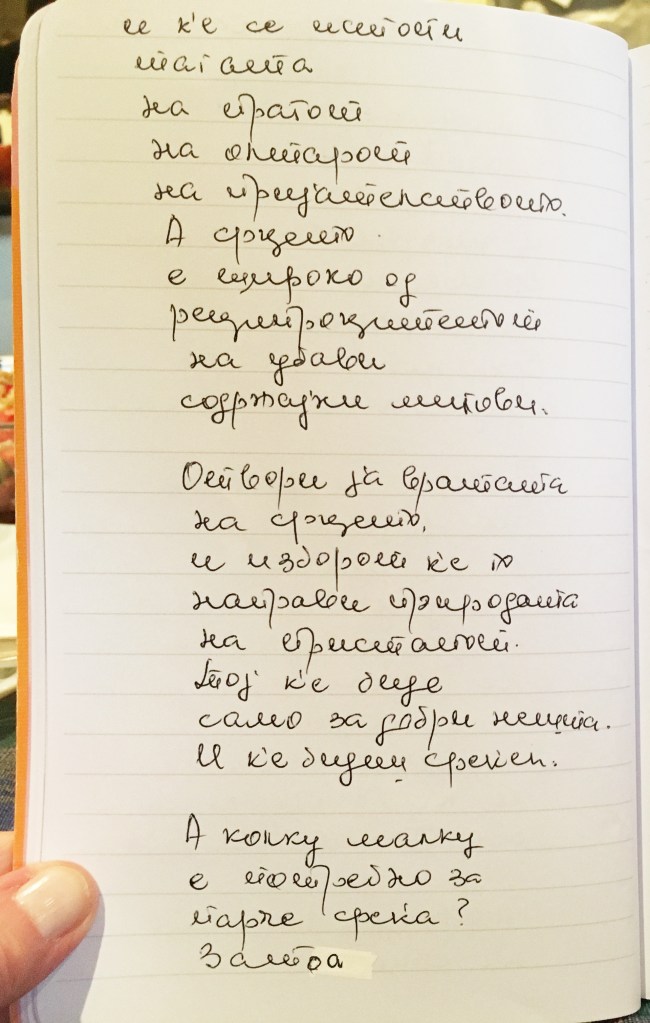 и ќе се истопи
тагата
на прагот
на олтарот
на пријателството.
А срцето
е широко од
реципроцитетот
на убави
содржајни мигови.
Отвори ја вратата
на срцето,
и изборот ќе го
направи природата
на пристапот.
Тој ќе биде
само за добри нешта.
И ќе бидеш среќен.
А колку малку
е потребно за
парче среќа?
Затоа